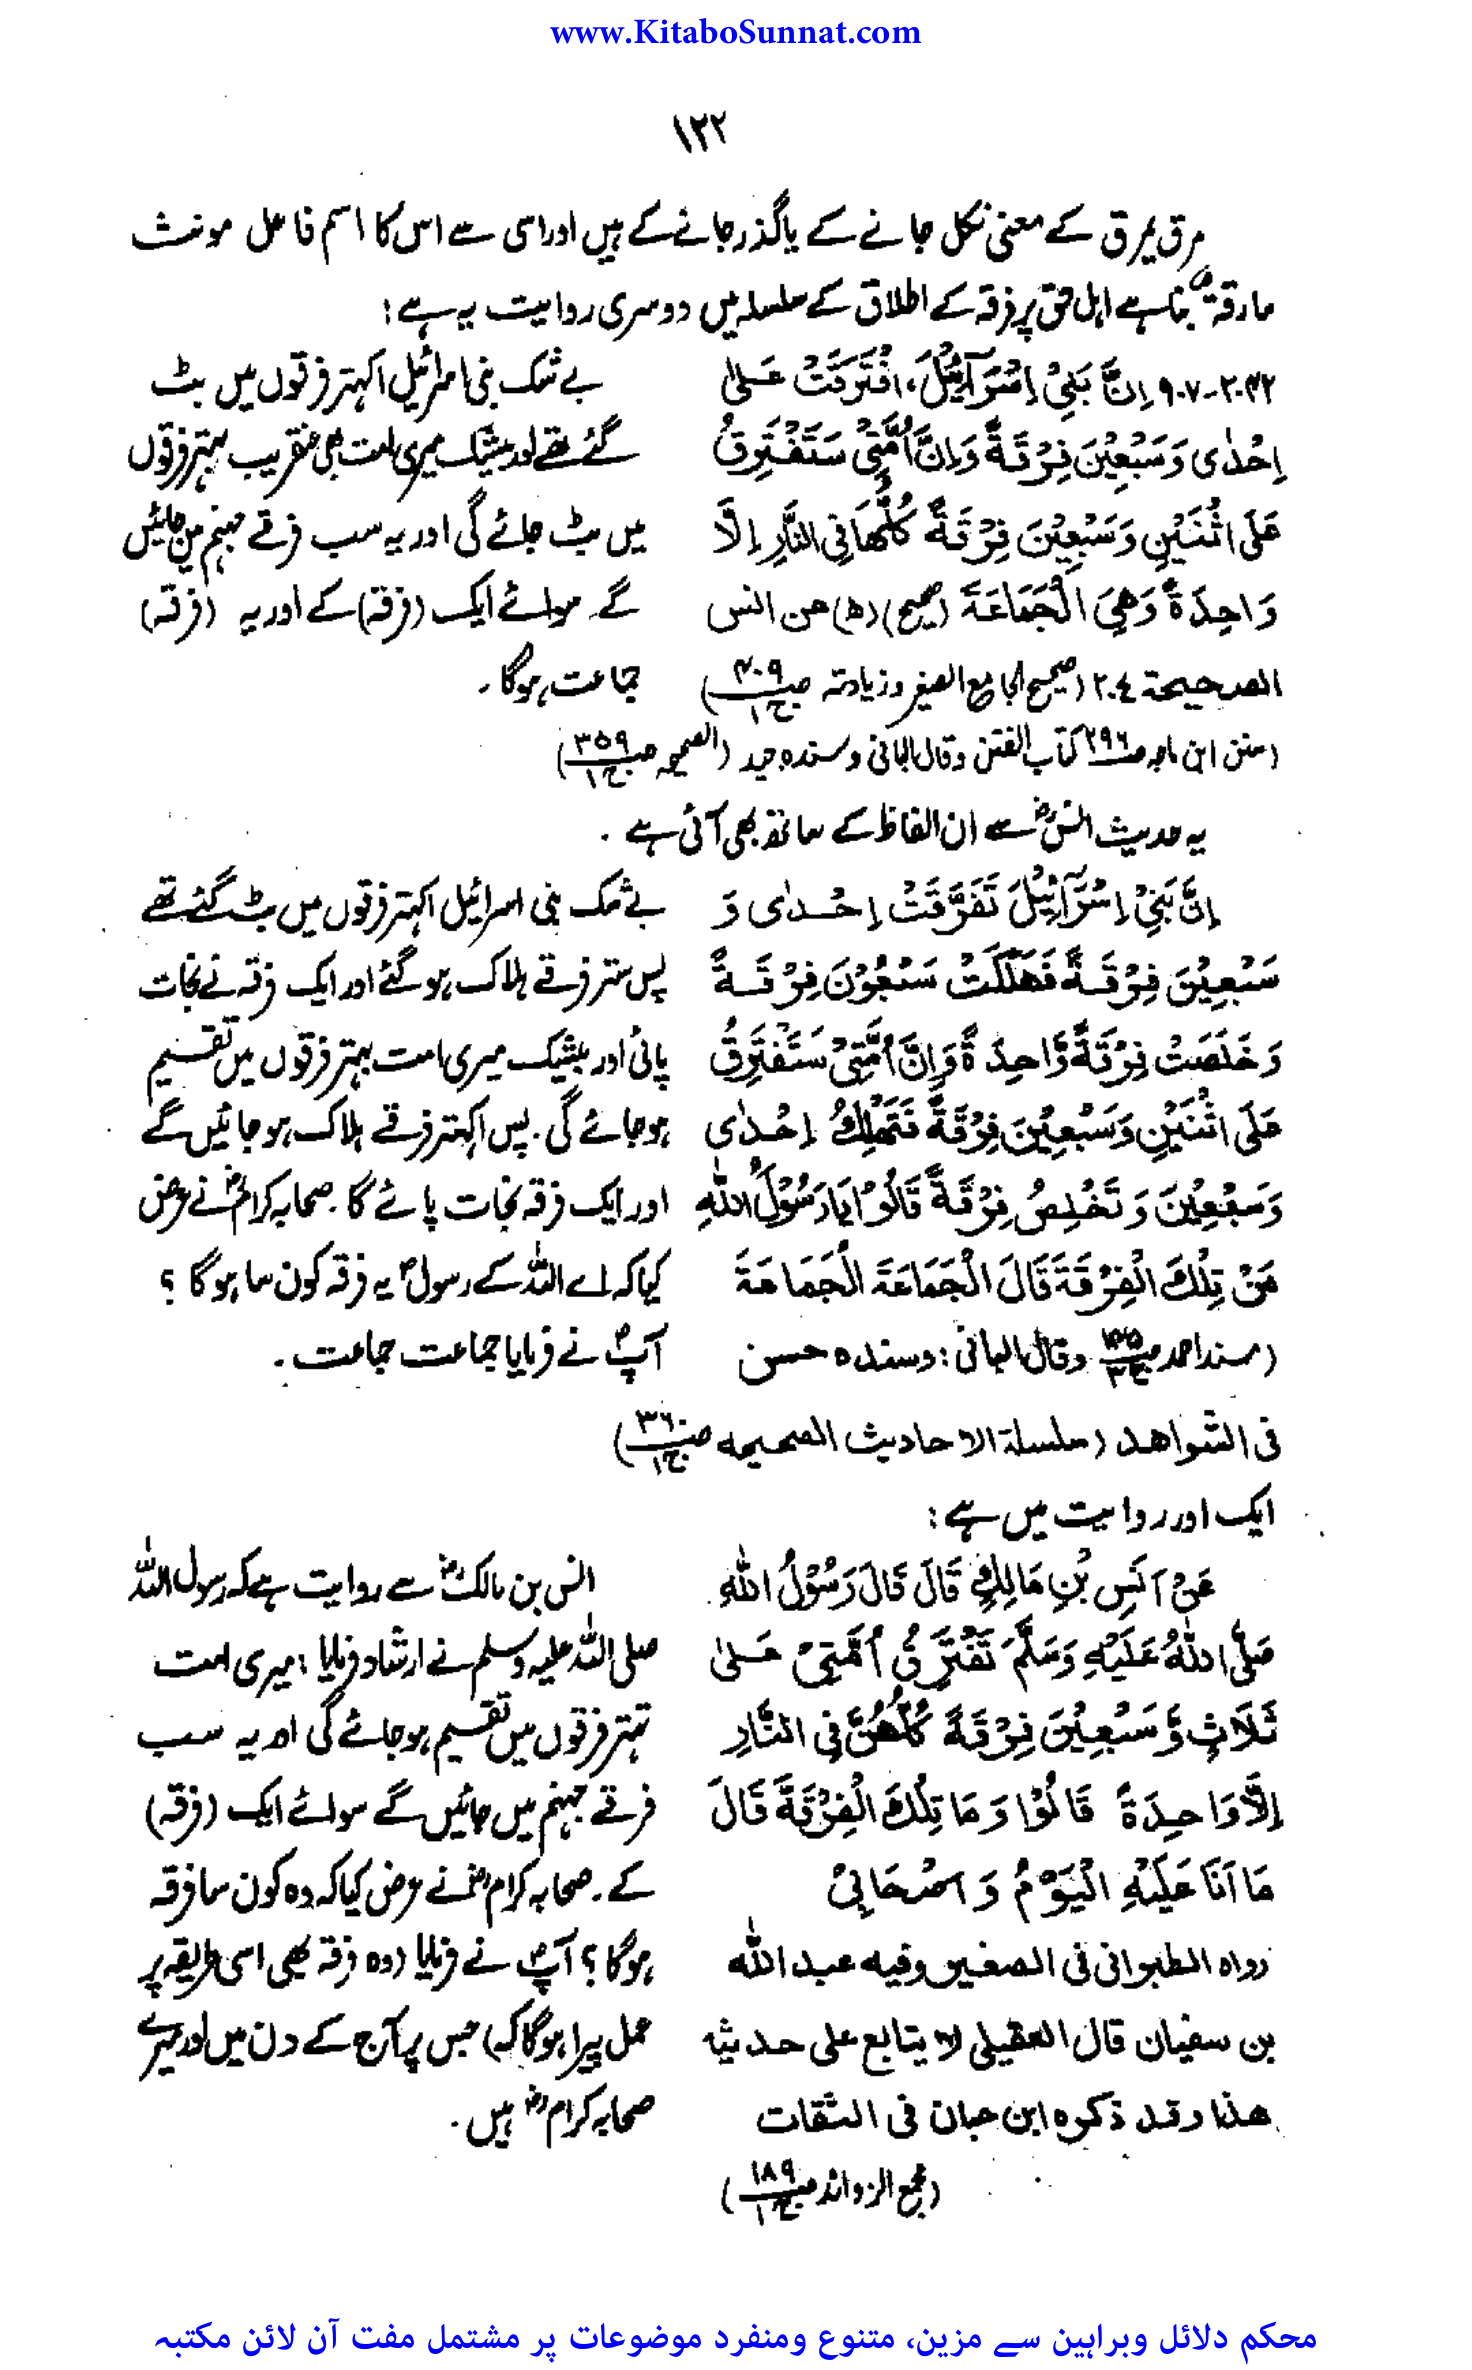 www.KitaboSunnat.com
۱۲۲
مرق یمرق کے معنی نکل جانے کے یا گذر جانے کے ہیں اور اسی سے اس کا اسم فاعل مونث
مارقة بنا ہے اہل حق پر فرقہ کے اطلاق کے سلسلہ میں دوسری روایت یہ ہے:
۲۰۴۲-۹۰۷ اِنَّ بَنِیْ اِسْرَآئِیْلَ، افْتَرَقَتْ عَلٰی
اِحْدٰی وَسَبْعِیْنَ فِرْقَةً وَاِنَّ اُمَّتِیْ سَتَفْتَرِقُ
عَلَی اثْنَیْنِ وَسَبْعِیْنَ فِرْقَةً کُلُّهَا فِی النَّارِ اِلَّا
وَاحِدَةً وَهِیَ الْجَمَاعَةُ (صحیح) (ه) عن انس
الصحیحة ۲۰٤ (صحیح الجامع الصغیر وزیادته ص۴۰۹ ج۱)
بے شک بنی اسرائیل اکہتر فرقوں میں بٹ
گئے تھے اور بیشک میری امت بھی عنقریب بہتر فرقوں
میں بٹ جائے گی اور یہ سب فرقے جہنم میں جائیں
گے سوائے ایک (فرقہ) کے اور یہ (فرقہ)
جماعت ہوگا۔
(سنن ابن ماجہ ص۲۹۶ کتاب الفتن وقال البانی وسنده جید (الصحیحہ ص۳۵۹ ج۱)
یہ حدیث انسؓ سے ان الفاظ کے ساتھ بھی آئی ہے۔
اِنَّ بَنِیْ اِسْرَآئِیْلَ تَفَرَّقَتْ اِحْدٰی وَ
سَبْعِیْنَ فِرْقَةً فَهَلَکَتْ سَبْعُوْنَ فِرْقَةً
وَخَلَصَتْ فِرْقَةٌ وَّاحِدَةٌ وَاِنَّ اُمَّتِیْ سَتَفْتَرِقُ
عَلَی اثْنَیْنِ وَسَبْعِیْنَ فِرْقَةً فَتَهْلِكُ اِحْدٰی
وَسَبْعِیْنَ وَتَخْلِصُ فِرْقَةٌ قَالُوْا یَا رَسُوْلَ اللّٰهِ
مَنْ تِلْكَ الْفِرْقَةُ قَالَ الْجَمَاعَةُ الْجَمَاعَةُ
(مسند احمد ص۱۴۵ ج۳ وقال البانی: وسنده حسن
بے شک بنی اسرائیل اکہتر فرقوں میں بٹ گئے تھے
پس ستر فرقے ہلاک ہو گئے اور ایک فرقہ نے نجات
پائی اور بیشک میری امت بہتر فرقوں میں تقسیم
ہوجائے گی۔ پس اکہتر فرقے ہلاک ہو جائیں گے
اور ایک فرقہ نجات پائے گا۔ صحابہ کرامؓ نے عرض
کیا کہ اے اللہ کے رسولؐ یہ فرقہ کون سا ہوگا؟
آپؐ نے فرمایا جماعت جماعت۔
فی الشواهد (سلسلة الاحادیث الصحیحه ص۳۶۰ ج۱)
ایک اور روایت میں ہے:
عَنْ اَنَسِ بْنِ مَالِكٍ قَالَ قَالَ رَسُوْلُ اللّٰهِ
صَلَّی اللّٰهُ عَلَیْهِ وَسَلَّمَ تَفْتَرِقُ اُمَّتِیْ عَلٰی
ثَلَاثٍ وَّسَبْعِیْنَ فِرْقَةً کُلُّهُنَّ فِی النَّارِ
اِلَّا وَاحِدَةً قَالُوْا وَمَا تِلْكَ الْفِرْقَةُ قَالَ
مَا اَنَا عَلَیْهِ الْیَوْمَ وَاَصْحَابِیْ
رواه الطبرانی فی الصغیر وفیه عبد الله
بن سفیان قال العقیلی لا یتابع علی حدیثه
هذا وقد ذکره ابن حبان فی الثقات
(مجمع الزوائد ص۱۸۹ ج۱)
انس بن مالکؓ سے روایت ہے کہ رسول اللہ
صلی اللہ علیہ وسلم نے ارشاد فرمایا: میری امت
تہتر فرقوں میں تقسیم ہوجائے گی اور یہ سب
فرقے جہنم میں جائیں گے سوائے ایک (فرقہ)
کے۔ صحابہ کرامؓ نے عرض کیا کہ وہ کون سا فرقہ
ہوگا؟ آپؐ نے فرمایا (وہ فرقہ بھی اسی طریقہ پر
عمل پیرا ہوگا کہ) جس پر آج کے دن میں اور میرے
صحابہ کرامؓ ہیں۔
محکم دلائل وبراہین سے مزین، متنوع ومنفرد موضوعات پر مشتمل مفت آن لائن مکتبہ